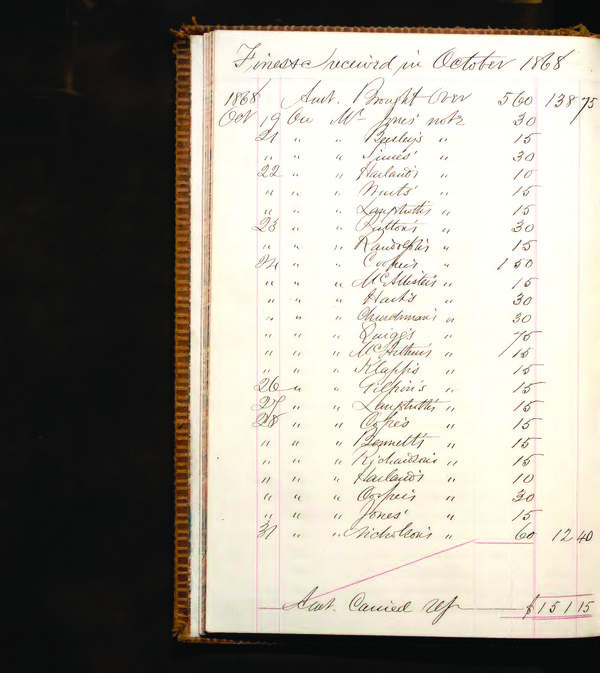 Fines &c received in October 1868
1868 Amt. Brought Over 5 60 138 75
Oct 19 On Mr Jones' note 30
21 " " Beesley's " 15
" " " Simes' " 30
22 " " Harland's " 10
" " " Wurts' " 15
" " " Langstroth's " 15
23 " " " 30
" " " Randolph's " 15
24 " " Cooper's " 1 50
" " " McAllister's " 15
" " " Hart's " 30
" " " Chuderman's " 30
" " " Quigg's " 75
" " " McArthur's " 15
" " " Klapp's " 15
26 " " Gilpin's " 15
27 " " Langstroth's " 15
28 " " Cope's " 15
" " " Bennett's " 15
" " " Richardson's " 15
" " " Harland's " 10
" " " Cooper's " 30
" " " Jones' " 15
31 " " Nicholson's " 60 12 40
Amt. Carried up $ 151 15